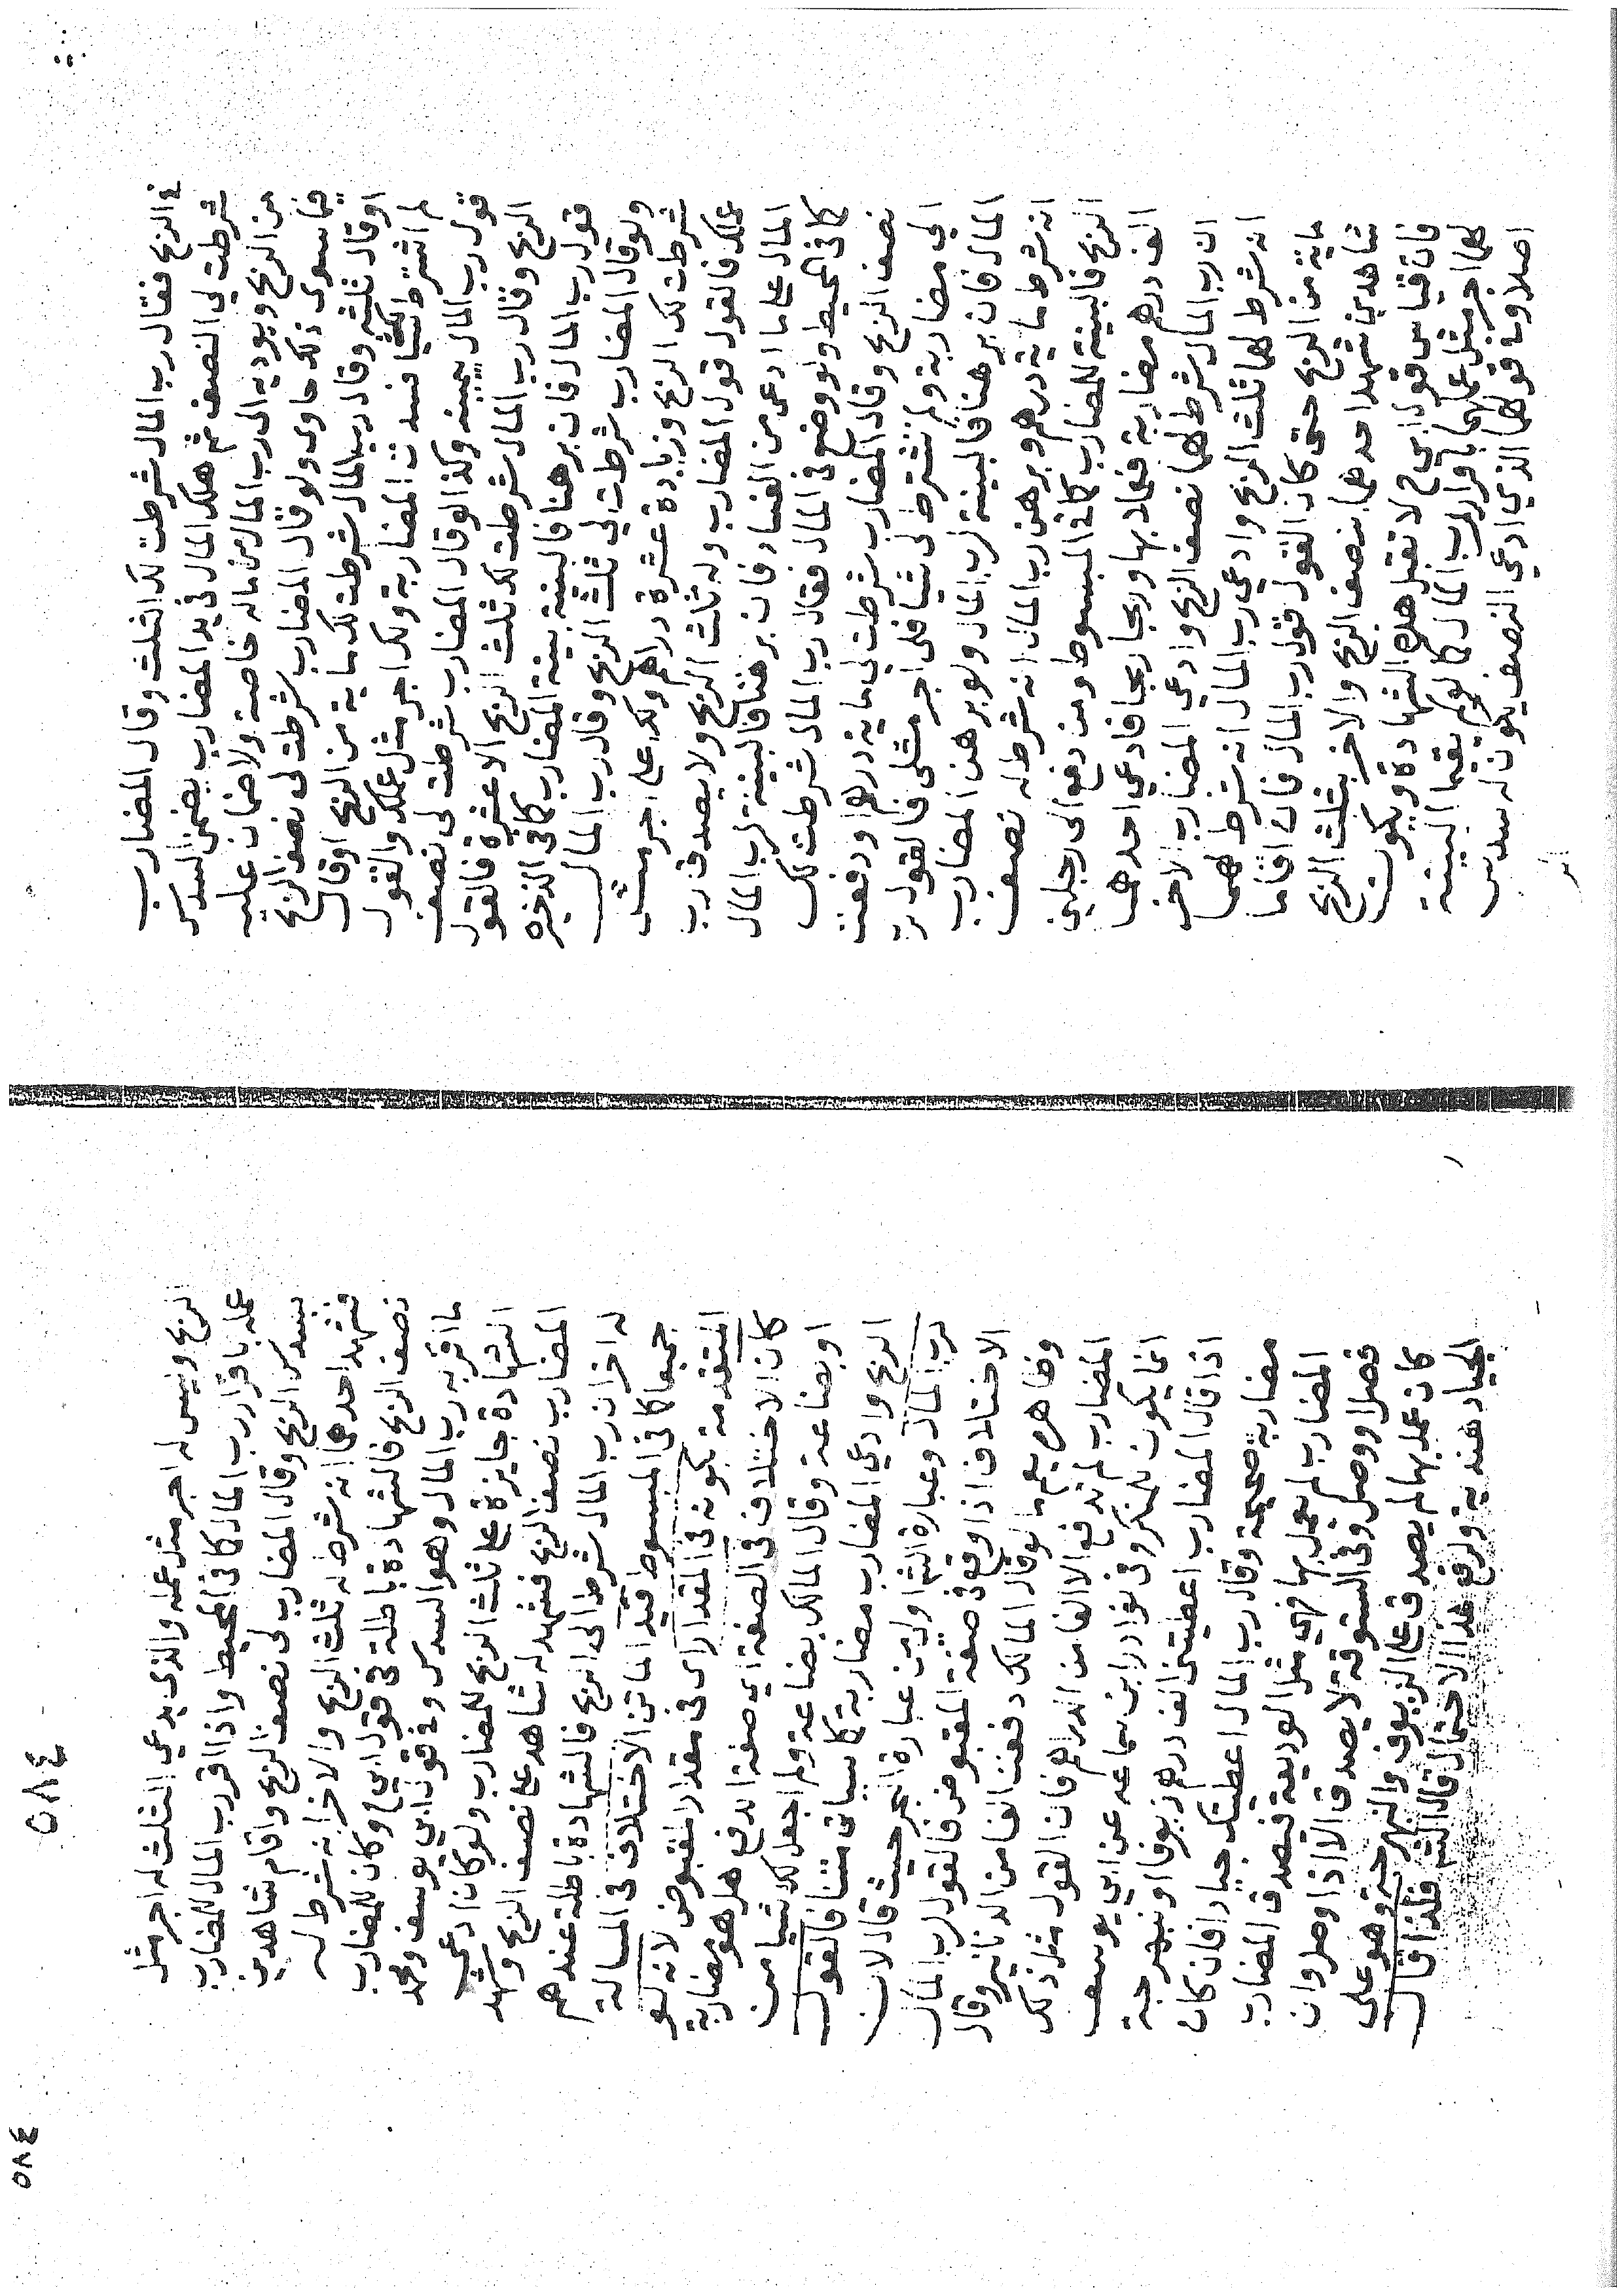 في الربح فقال رب المال شرطت لك الثلث وقال المضارب
شرطت لي النصف ثم هلك المال في يد المضارب يضمن السدس
من الربح ويوديه الى رب المال من ماله خاصة ولا ضمان عليه
فيما سوى ذلك حاوى ولو قال المضارب شرطت لي نصف الربح
او قال ثلثه وقال رب المال شرطت لك ماية من الربح او قال
لم اشترط لك شيا فسدت المضاربة ولك اجر مثل عملك والقول
قول رب المال بيمينه وكذا لو قال المضارب شرطت لي نصف
الربح وقال رب المال شرطت لك ثلث الربح الا عشرة فالقول
قول رب المال فان برهنا فالبينة بينة المضارب كما في الذخيرة
ولو قال المضارب شرطت لي ثلث الربح وقال رب المال
شرطت لك الربح وزيادة عشرة دراهم ولك علي اجر مثل
عملك فالقول قول المضارب وله ثلث الربح ولا يصدق رب
المال على ما ادعى من الفساد فان برهنا فالبينة لرب المال
كما في المحيط ولو وضع في المال فقال رب المال شرطت لك
نصف الربح وقال المضارب شرطت لي ماية درهم او دفعت
الي مضاربة ولم تشترط لي شيا فلي اجر مثلي فالقول لرب
المال فان برهنا فالبينة لرب المال ولو برهن المضارب
انه شرط ماية درهم وبرهن رب المال انه شرط له نصف
الربح فالبينة للمضارب كما في المبسوط ومن دفع الى رجلين
الف درهم مضاربة فعملا بها وربحا ربحا فادعي احدهما
ان رب المال شرط لهما نصف الربح وادعي المضارب الاخر
انه شرط لهما ثلث الربح وادعي رب المال انه شرط لهما
ماية من الربح حتى كان القول قول رب المال فان اقاما
شاهدين شهد احدهما بنصف الربح والاخر بثلث الربح
فان قياس قول ابي ح لا تقبل هذه الشهادة ويكون
لهما اجر مثل عملهما باقرار رب المال كما لو لم يقيما البينة
اصلا وما قولهما الذي ادعي النصف يكون له سدس
الر
٥٨٤
الربح وليس له اجر مثل عمله والذي يدعي الثلث له اجر مثل
عمله باقرار رب المال كما في المحيط واذا اقر رب المال للمضارب
بسدس الربح وقال المضارب لي نصف الربح واقام شاهدين
فشهد احدهما انه شرط له ثلث الربح والاخر انه شرط له
نصف الربح فالشهادة باطلة في قول ابي ح وكان للمضارب
ما اقر به رب المال وهو السدس وفي قول ابي يوسف ومحمد
الشهادة جايزة على ثلث الربح للمضارب ولو كان ادعي
المضارب نصف الربح فشهد له شاهد على نصف الربح وشهد
له اخر ان رب المال شرط الى الربح فالشهادة باطلة عندهم
جميعا كما في المبسوط قيد الماتن الاختلاف في المسالة
المتقدمة بكونه في المقدار اى في مقدار المقبوض لانه لو
كان الاختلاف في الصفة اي صفة الدفع هل هو مضاربة
او بضاعة وقال المالك بضاعة ولم اجعل لك شيا من
الربح وادعي المضارب مضاربة كما سياتي متنا فالقول
لرب المال وعبارة الشم اولى من عبارة البحر حيث قال لان
الاختلاف اذا وقع في صفة المقبوض فالقول لرب المال
وظاهره يعم ما لو قال المالك دفعت الفا من الدنانير وقال
المضارب لم تدفع الا الفا من الدراهم فان القول مثل ذلك
انما يكون للمنكر وفي نوادر ابن سماعه عن ابي يوسف
اذا قال المضارب اعطيتني الف درهم زيوفا او نبهرجة
مضاربة صحيحة وقال رب المال اعطيتك جيادا فان كان
المضارب لم يعمل بها فهي مثل الوديعة فيصدق المضارب
فصل او وصل وفي الستوقة لا يصدق الا اذا وصل وان
كان عمل بها لم يصدق على الزيوف والنبهرجة وهو على
الجياد هندية ولرفع هذا الاحتمال قال الشم فلذا قال
٥٨٤